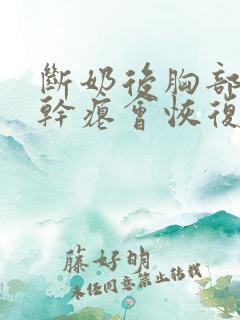 斷奶後胸部
幹癟會恢復
藤好明
未经同意禁止转载